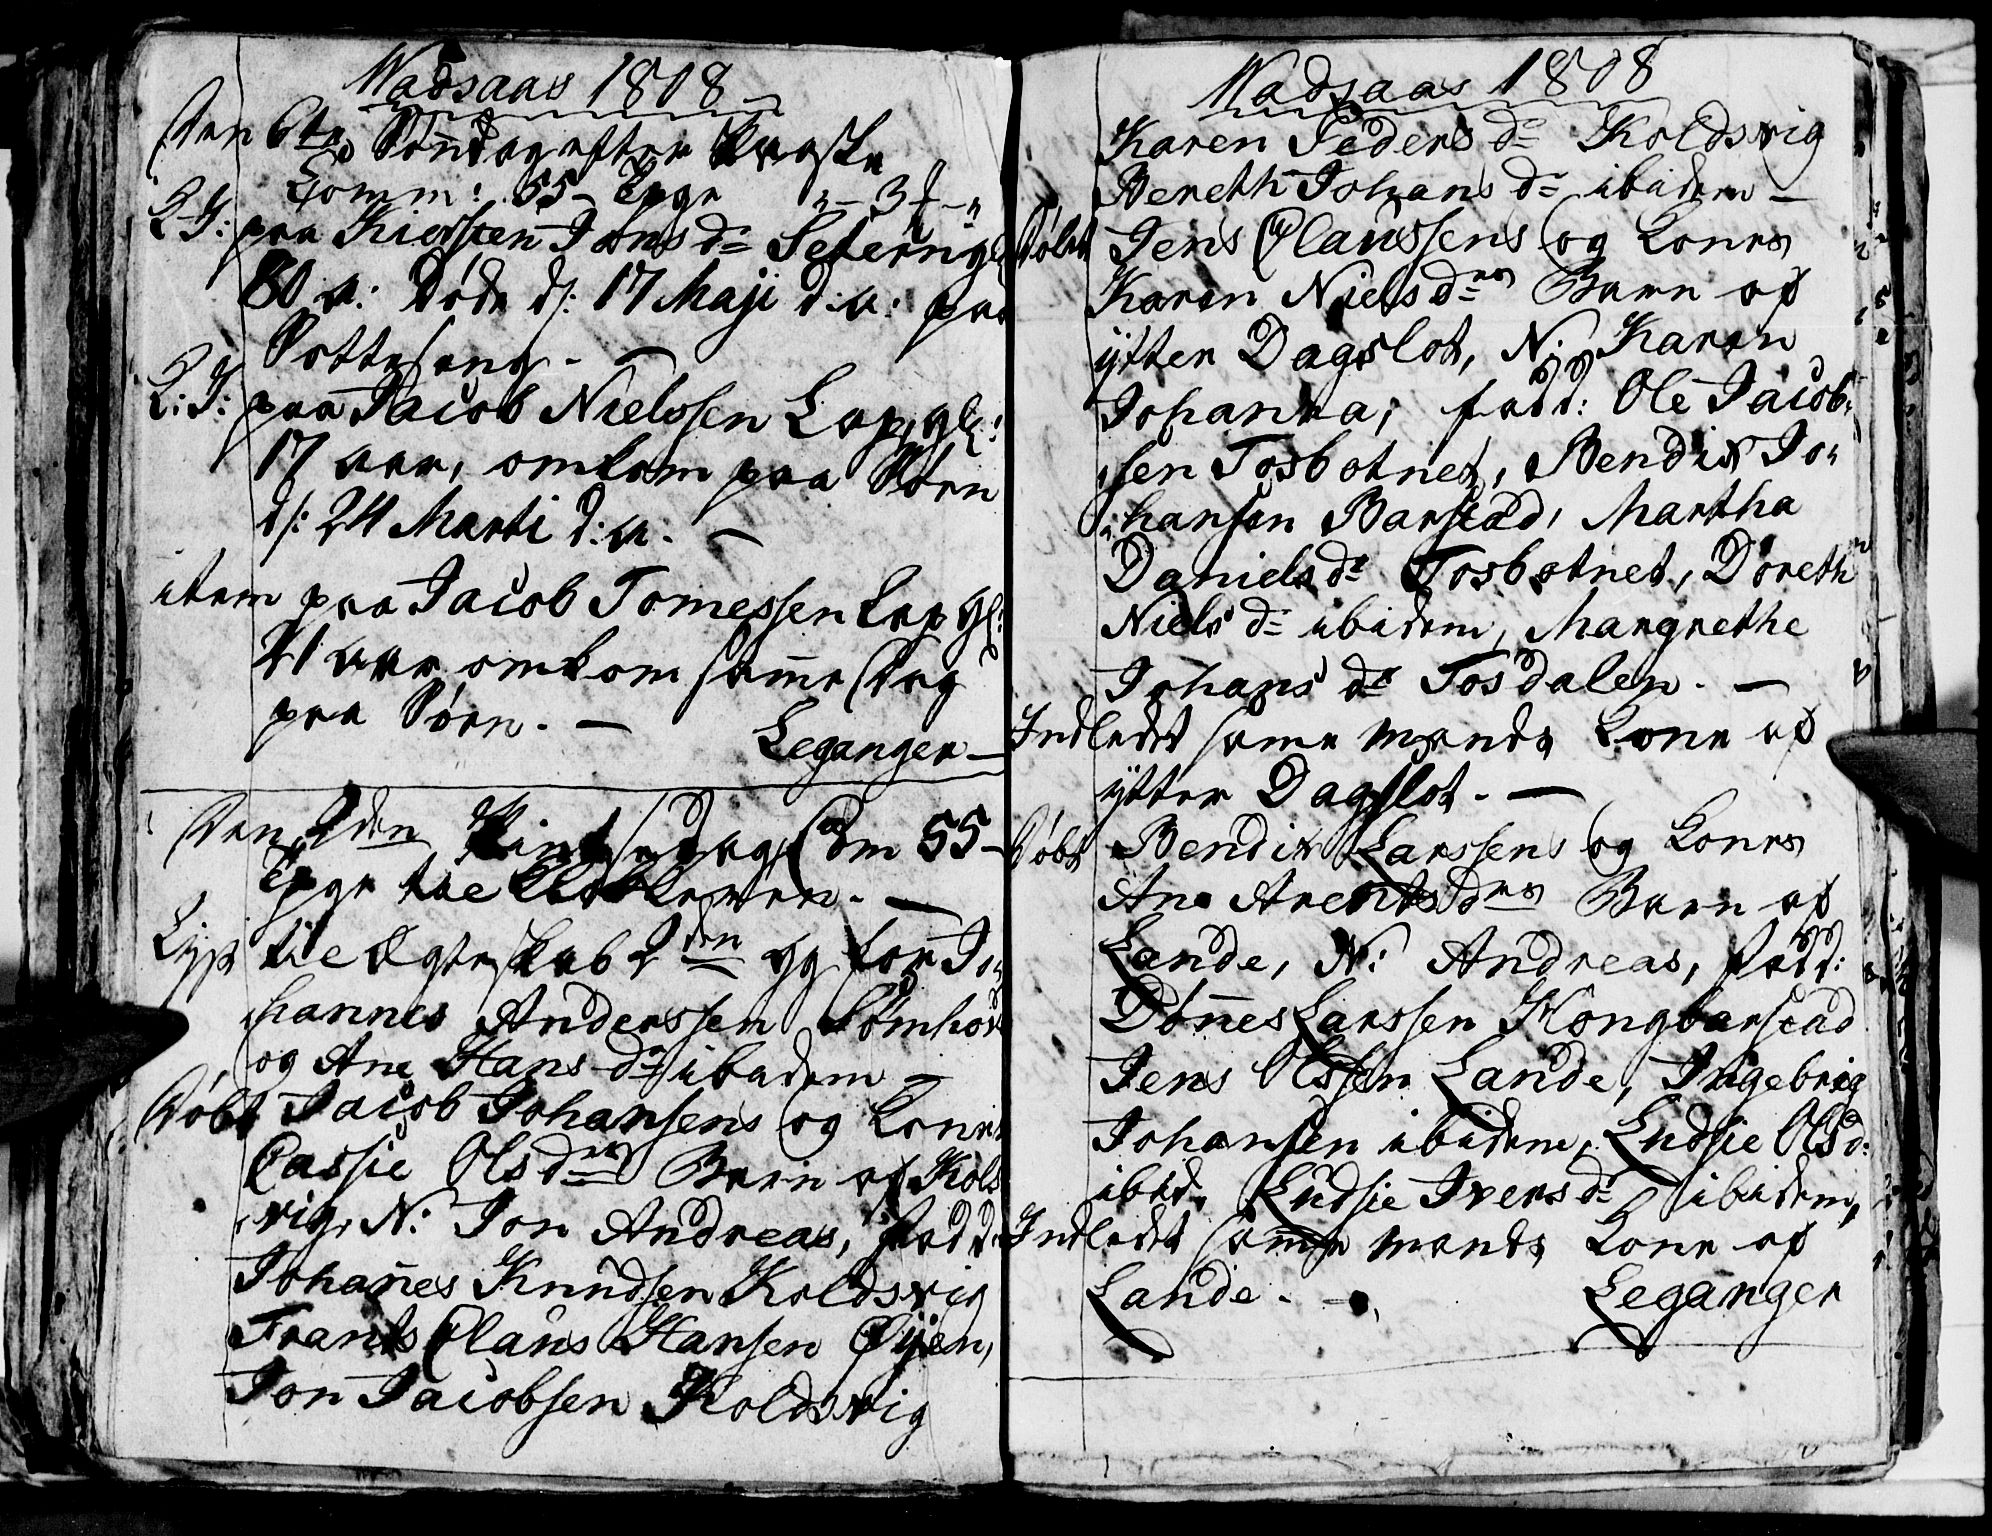 Wadsaas 1808
Den 6te Søndag efter Paaske
Comm: 55 - Page
paa Kiersten Jens dr Seternig
80 a: døde d: 17 Maji d: a: paa
Sottesang. -
paa Jacob Nielssen Lap, gl:
17 aar, omkom paa Søen
d: 24 Marti d: a: -
item paa Jacob Tomessen Lap gl:
21 aar omkom same Dag
paa Søen. -
Leganger
Den 2den Pintsedag Com 55 -
tie
Lyst til Ægteskab 2den Gg for Jo
hannes Anderssen Sømhov
og Ane Hans dr ibidem -
Døbt Jacob Johansens og Kones
Cassie Ols drs Barn af Kols
vig, N: Jon Andreas, fadd:
Johanes Knudsen Koldsvig
Frants Claus Hansen Øyen,
Jon Jacobsen Koldsvig
Wadsaas 1808
Karen Peders dr Koldsvig
Bereth Johans dr ibidem -
Døbt Jens Claussens og Kones
Karen Niels drs Barn af
ytter Dagslot, N: Karen
Johanna, fadd: Ole Jacob
sen Tosbotnet, Bendix Jo
hansen Barstad, Martha
Daniels dr Tosbotnet, Doreth
Niels dr ibidem, Margrethe
Johans dr Tosdalen. -
Indledet same Mands Kone af
ytter Dagslot. -
Døbt Bendix Larssens og Kones
Ane Arents drs Barn af
Lande, N: Andreas, fadd:
Dønes Larssen Kongbarstad
Jens Olssen Lande, Ingebrig
Johansen ibidem, Ludsie Olsd:
ibid. Ludsie Ivers dr ibidem,
Indledet same Mands Kone af
Lande. -
Leganger